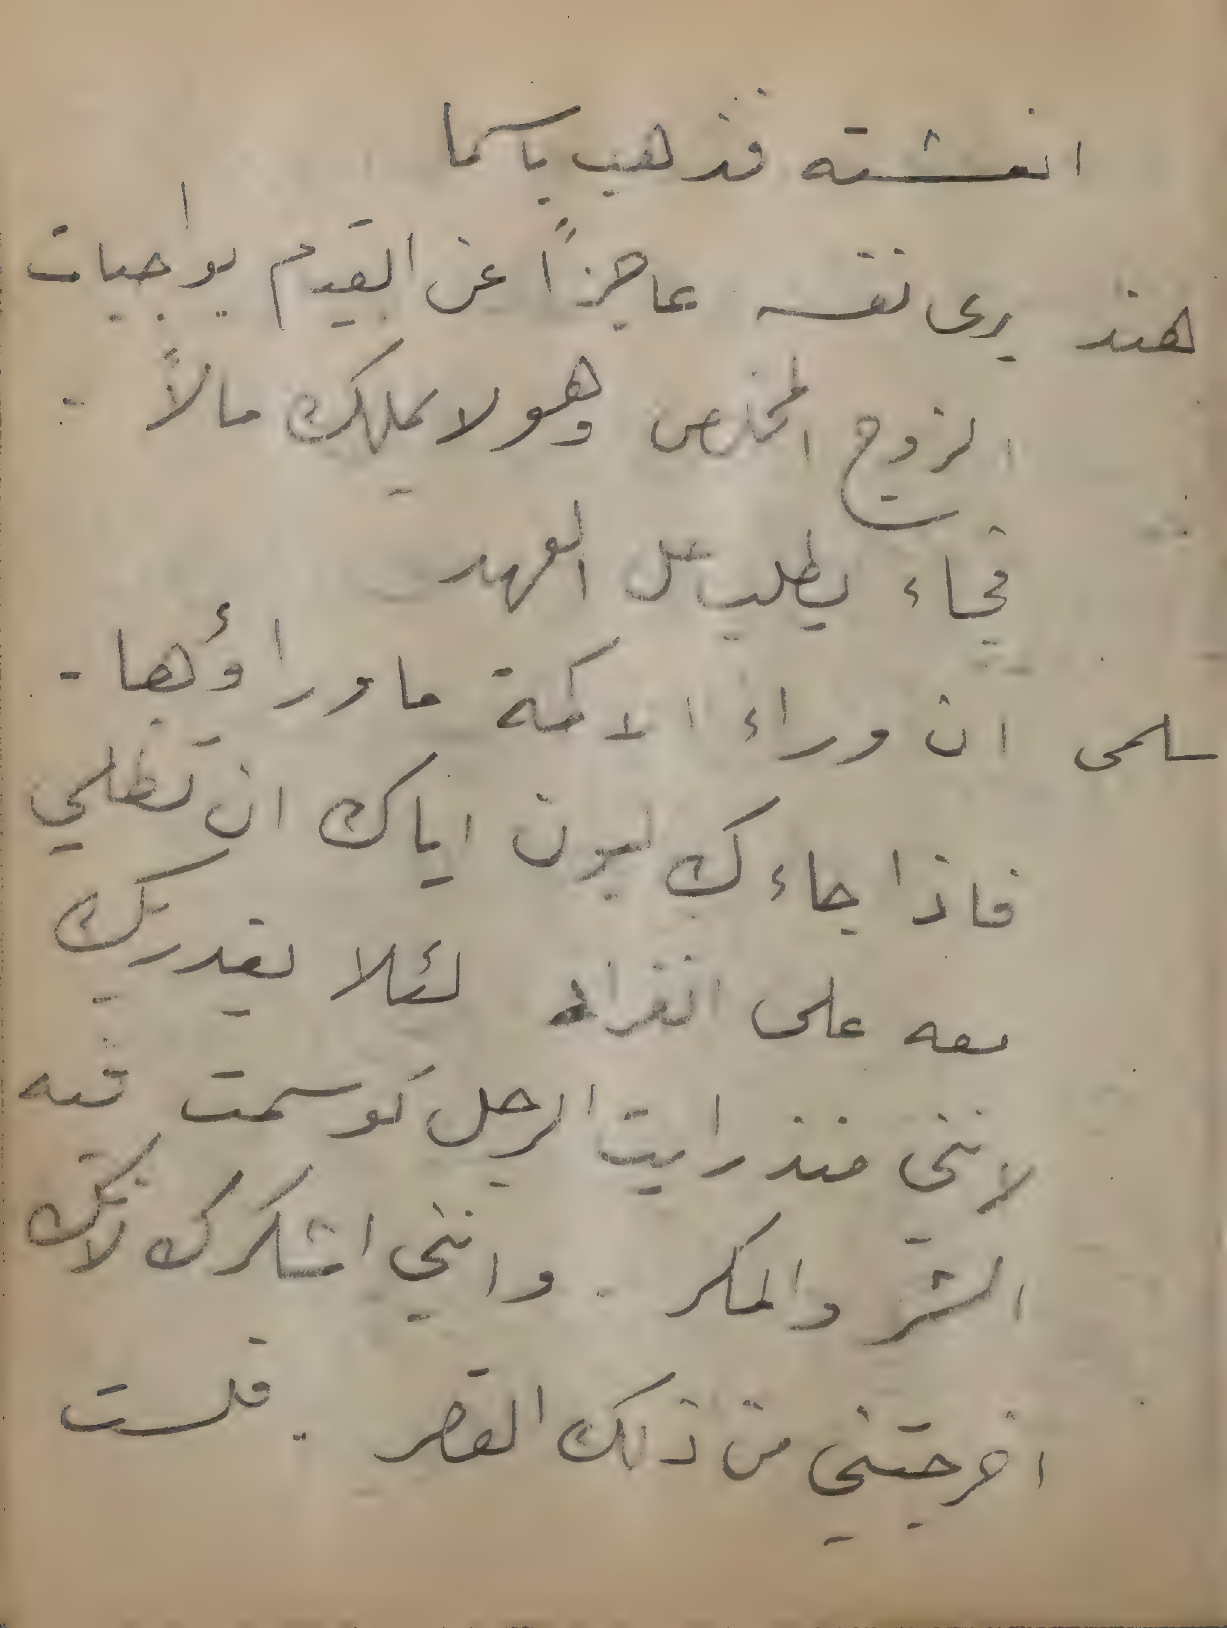 انعشته فذهب باسما
هند يرى نفسه عاجزاً عن القيام بواجبات
الزوج المخلص وهو لا يملك مالاً .
فجاء يطلب حل العهد
سلمى ان وراء الاكمة ما وراؤها .
فاذا جاءك ليون اياك ان تظلي
معه على انفراد لئلا يغدر بك
لانني منذ رايت الرجل توسمت فيه
الشر والمكر . وانني اشكرك لانك
اخرجتني من ذلك القصر . فلست